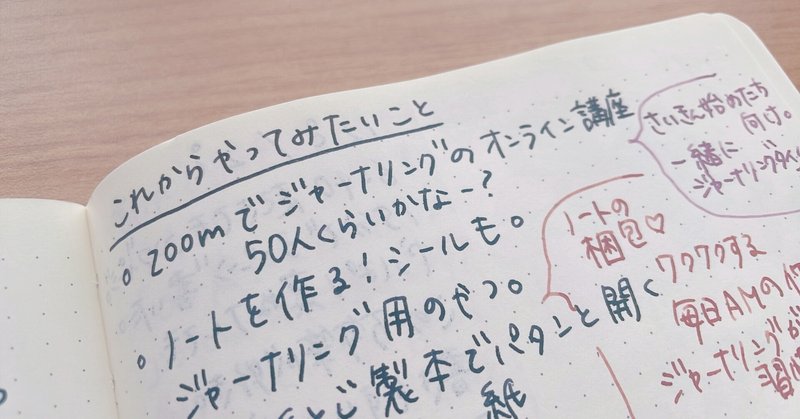 これからやってみたいこと
。zoomでジャーナリングのオンライン講座
50人くらいかなー?
。ノートを作る!シールも。
ジャーナリング用のやつ。
製本でパタンと開く
紙
さいきん始めたち
向け。
一緒に
ジャーナリングタイム
ノートの
梱包♡
ワクワクする
毎日AMの
ジャーナリングが
習慣